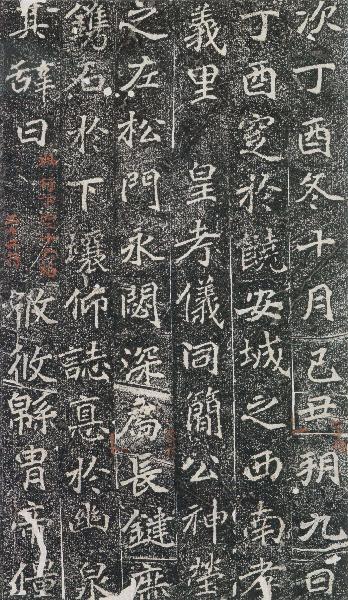 次丁酉冬十月己丑朔九日
丁酉窆於饒安城之西南孝
義里 皇考儀同簡公神塋
之左松門永閟深扃長鍵庶
鐫石於下壤仰誌惪於幽泉
其辭曰 攸攸緜胄帝